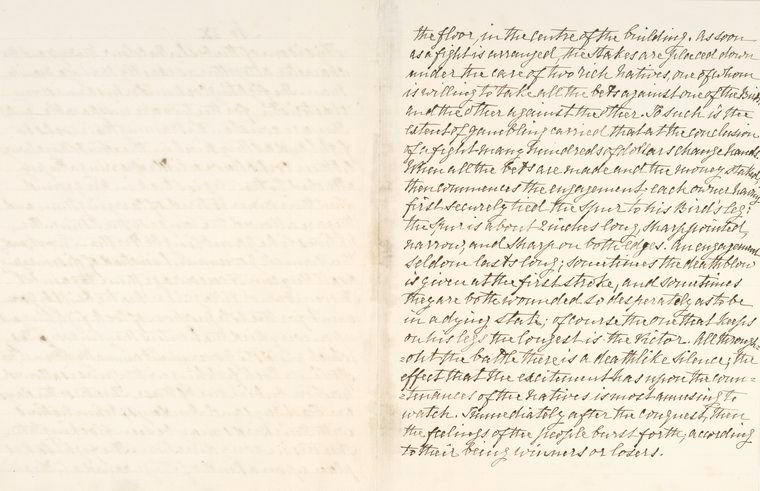 the floor, in the centre of the building. As soon
as a fight is arranged, the stakes are placed down
under the care of two rich Natives, one of whom
is willing to take all the bets against one of the Birds,
and the other against the other. To such is the
extent of gambling carried that at the conclusion
of a fight many hundreds of dollars change hands.
When all the bets are made and the money staked,
then commences the engagement, each owner having
first securely tied the Spur to his Bird's leg:
the Spur is about 2 inches long, sharp pointed,
narrow, and sharp on both edges. An engagement
seldom lasts long; sometimes the deathblow
is given at the first stroke, and sometimes
they are both wounded so desperately as to be
in a dying state; of course the one that keeps
on his legs the longest is the victor. All through-
=out the battle there is a deathlike silence; the
effect that the excitement has upon the coun=
=tenances of the natives is most amusing to
watch. Immediately after the conquest, then
the feelings of the people burst forth, according
to their being winners or losers.